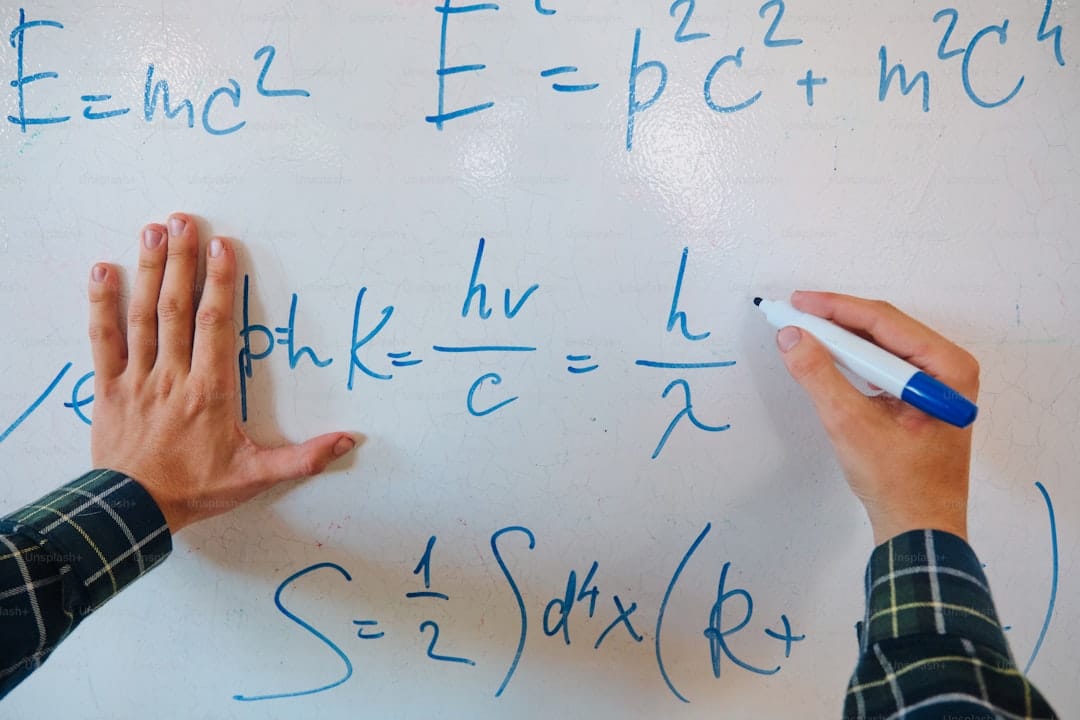 E = mc² E² = p²c² + m²c⁴
p = h K = hv/c = h/λ
S = 1/2 ∫ d⁴x (R +